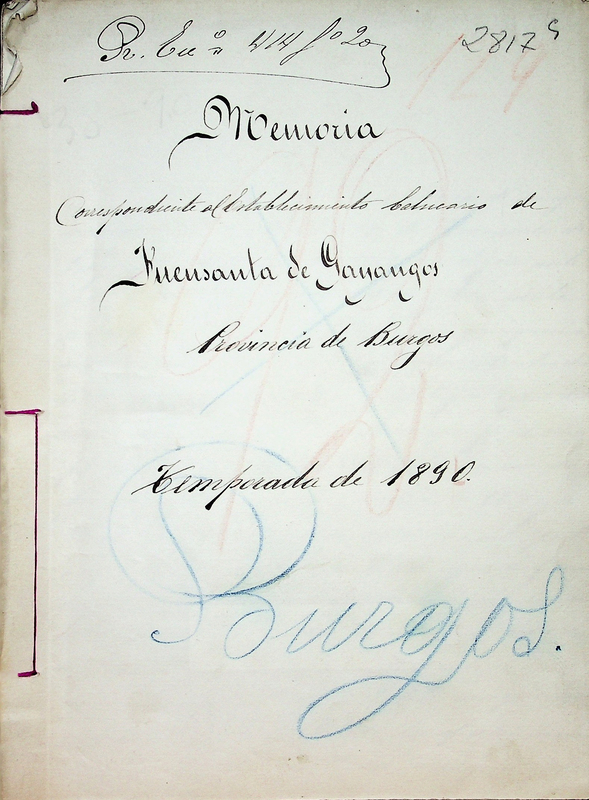 2817
Memoria
Correspondiente al Establecimiento balneario de
Fuensanta de Gayangos
Provincia de Burgos
Temporada de 1890.
Burgos.